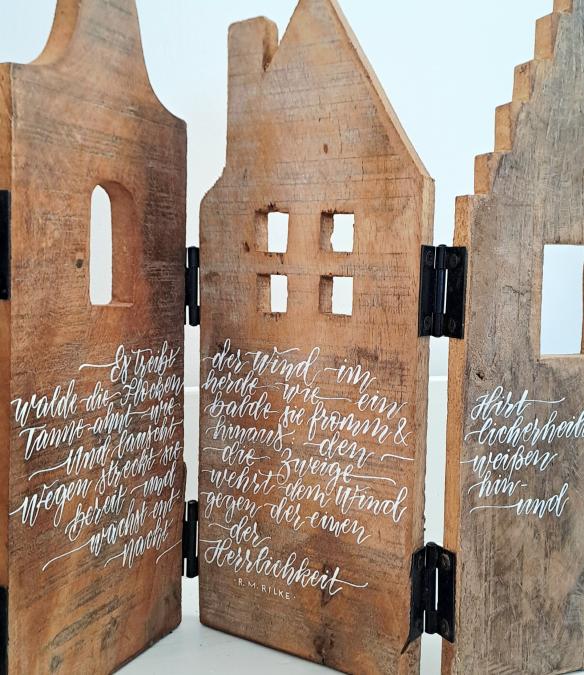 Es treibt
walde die Flocken
Tanne ahnt wie
Und lauscht
wegen streckt sie
bereit - und
wächst ent-
nacht
der Wind im
herde wie ein
balde sie fromm &
hinaus. den
die Zweige
wehrt dem Wind
gegen der einen
der
Herrlichkeit
·R.M.RILKE·
Hirt
weißen
hin-
und